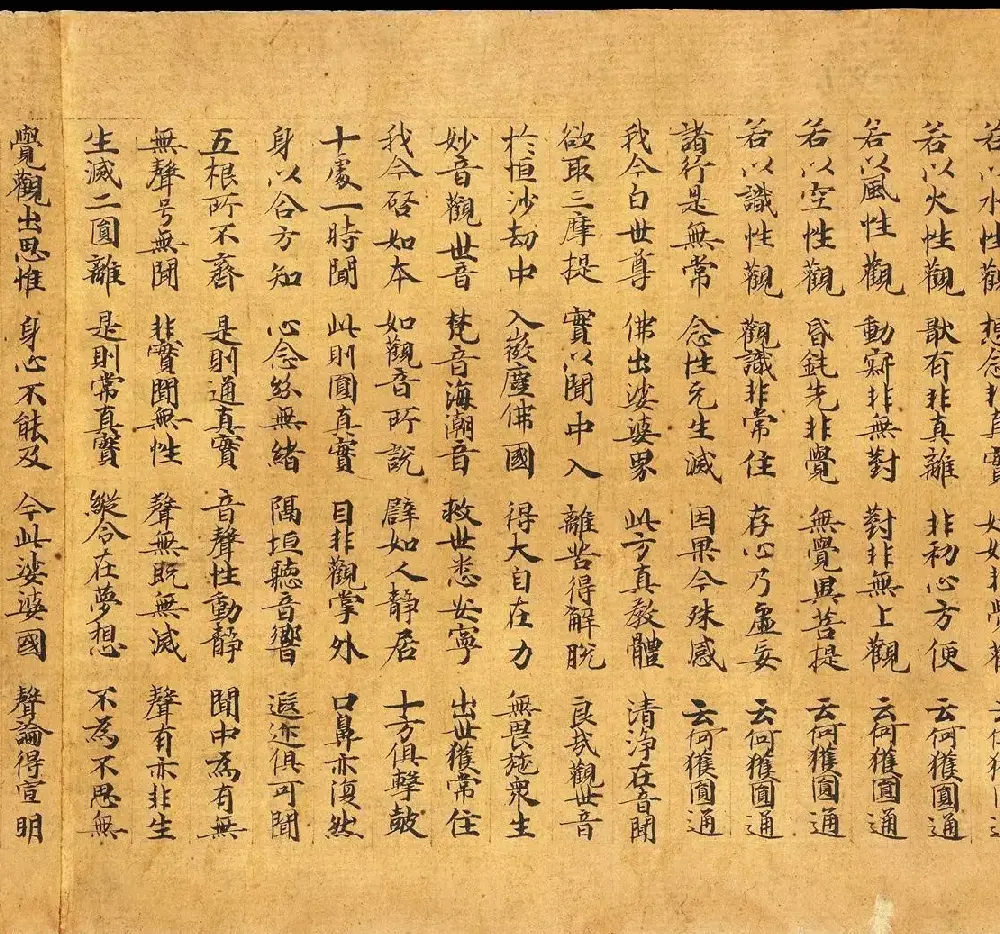 若以水性觀 想念非真實 如如非覺觀 云何獲圓通
若以火性觀 猒有非真離 非初心方便 云何獲圓通
若以風性觀 動寂非無對 對非無上觀 云何獲圓通
若以空性觀 昏鈍先非覺 無覺異菩提 云何獲圓通
若以識性觀 觀識非常住 存心乃虛妄 云何獲圓通
諸行是無常 念性元生滅 因果今殊感 云何獲圓通
我今白世尊 佛出娑婆界 此方真教體 清淨在音聞
欲取三摩提 實以聞中入 離苦得解脫 良哉觀世音
於恒沙劫中 入微塵佛國 得大自在力 無畏施衆生
妙音觀世音 梵音海潮音 救世悉安寧 出世獲常住
我今啓如本 如觀音所說 辟如人靜居 十方俱擊鼓
十處一時聞 此則圓真實 目非觀掌外 口鼻亦復然
身以合方知 心念紛無緒 隔垣聽音響 遐迩俱可聞
五根所不齊 是則通真實 音聲性動靜 聞中為有無
無聲号無聞 非實聞無性 聲無既無滅 聲有亦非生
生滅二圓離 是則常真實 縱令在夢想 不為不思無
覺觀出思惟 身心不能及 今此娑婆國 聲論得宣明